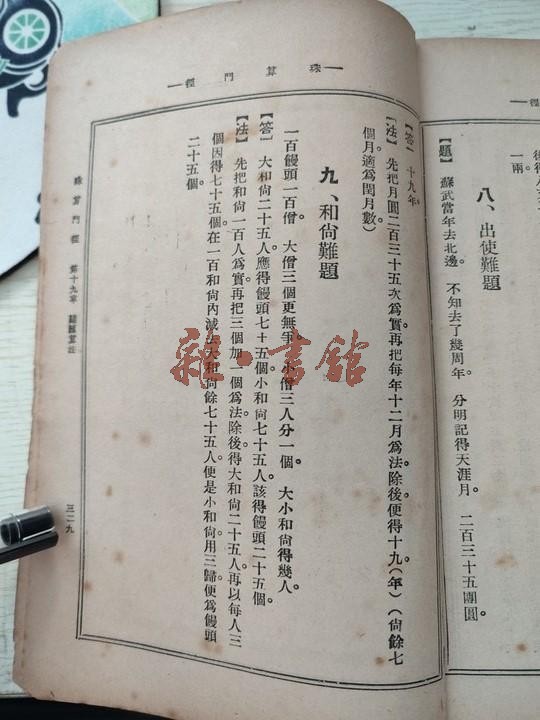 珠算門徑
八、出使難題
【題】蘇武當年去北邊。不知去了幾周年。分明記得天涯月。二百三十五團圓。
【答】十九年。
【法】先把月圓二百三十五次爲實。再把每年十二月爲法。除後便得十九(年)(尙餘七
個月適爲閏月數)
九、和尙難題
一百饅頭一百僧。大僧三個更無爭。小僧三人分一個。大小和尙得幾人。
【答】大和尙二十五人。應得饅頭七十五個。小和尙七十五人。該得饅頭二十五個。
【法】先把和尙一百人爲實。再把三個加一個爲法。除後得大和尙二十五人。再以每人三
個因得七十五個。在一百和尙內減去大和尙。餘七十五人。便是小和尙。用三歸便爲饅頭
二十五個。
珠算門徑 第十九章 雜題算法
三二九
雜·書館